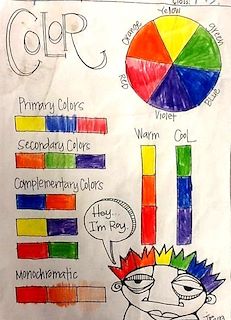 Class:
COLOR
Yellow
Orange
green
Red
Blue
Violet
Primary Colors
Secondary Colors
Complementary Colors
Monochromatic
Warm
Cool
Hey...
I'm Roy.